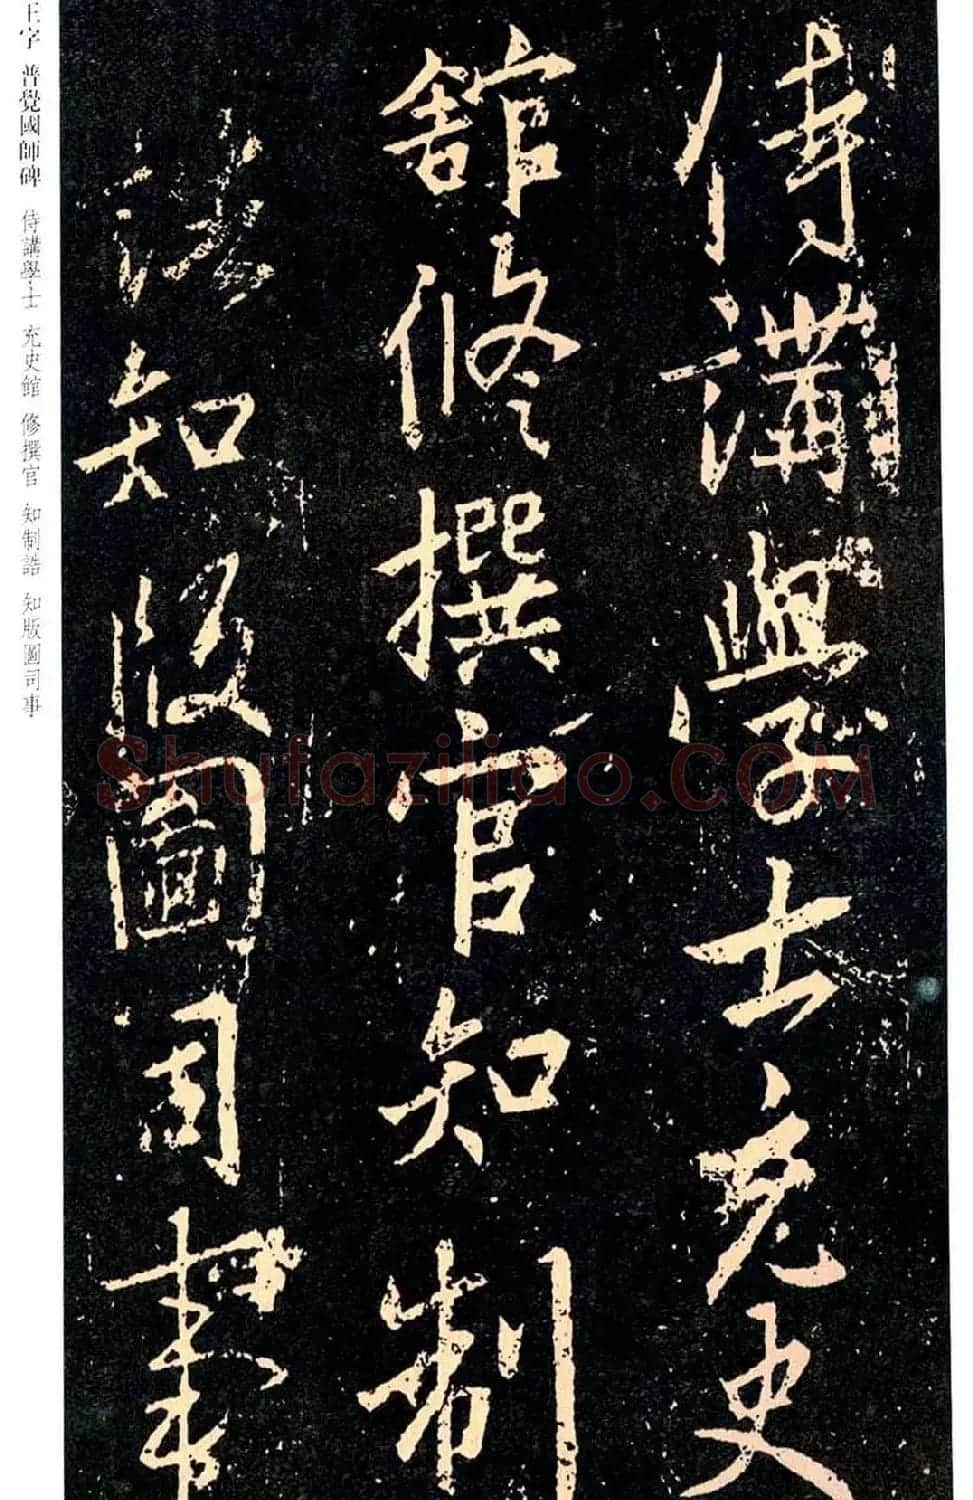 侍講學士充史
館修撰官知制
誥知版圖司事
王字 普覺國師碑 侍講學士 充史館 修撰官 知制誥 知版圖司事
Shufaziliao.COM